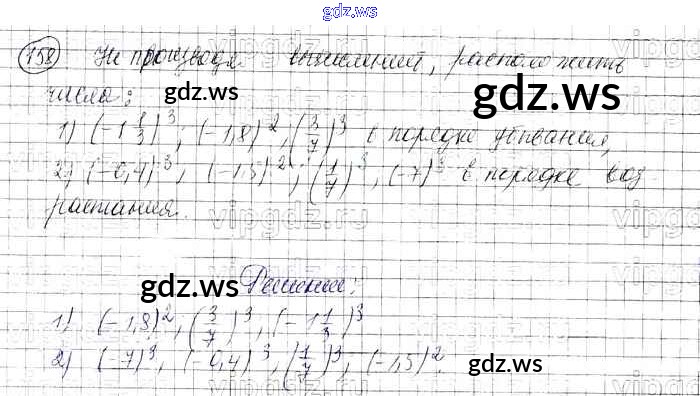 gdz.ws
158 Не производя вычислений, расположить
числа: gdz.ws gdz.ws
1) (-1 1/3)^3; (-1,8)^2; (3/7)^3 в порядке убывания,
2) (-0,4)^3; (-1,5)^2; (1/7)^3, (-7)^3 в порядке воз
растания.
vipgdz.ru
gdz.ws
Решение:
1) (-1,8)^2; (3/7)^3, (-1 1/3)^3
2) (-7)^3, (-0,4)^3, (1/7)^3, (-1,5)^2.
gdz.ws gdz.ws